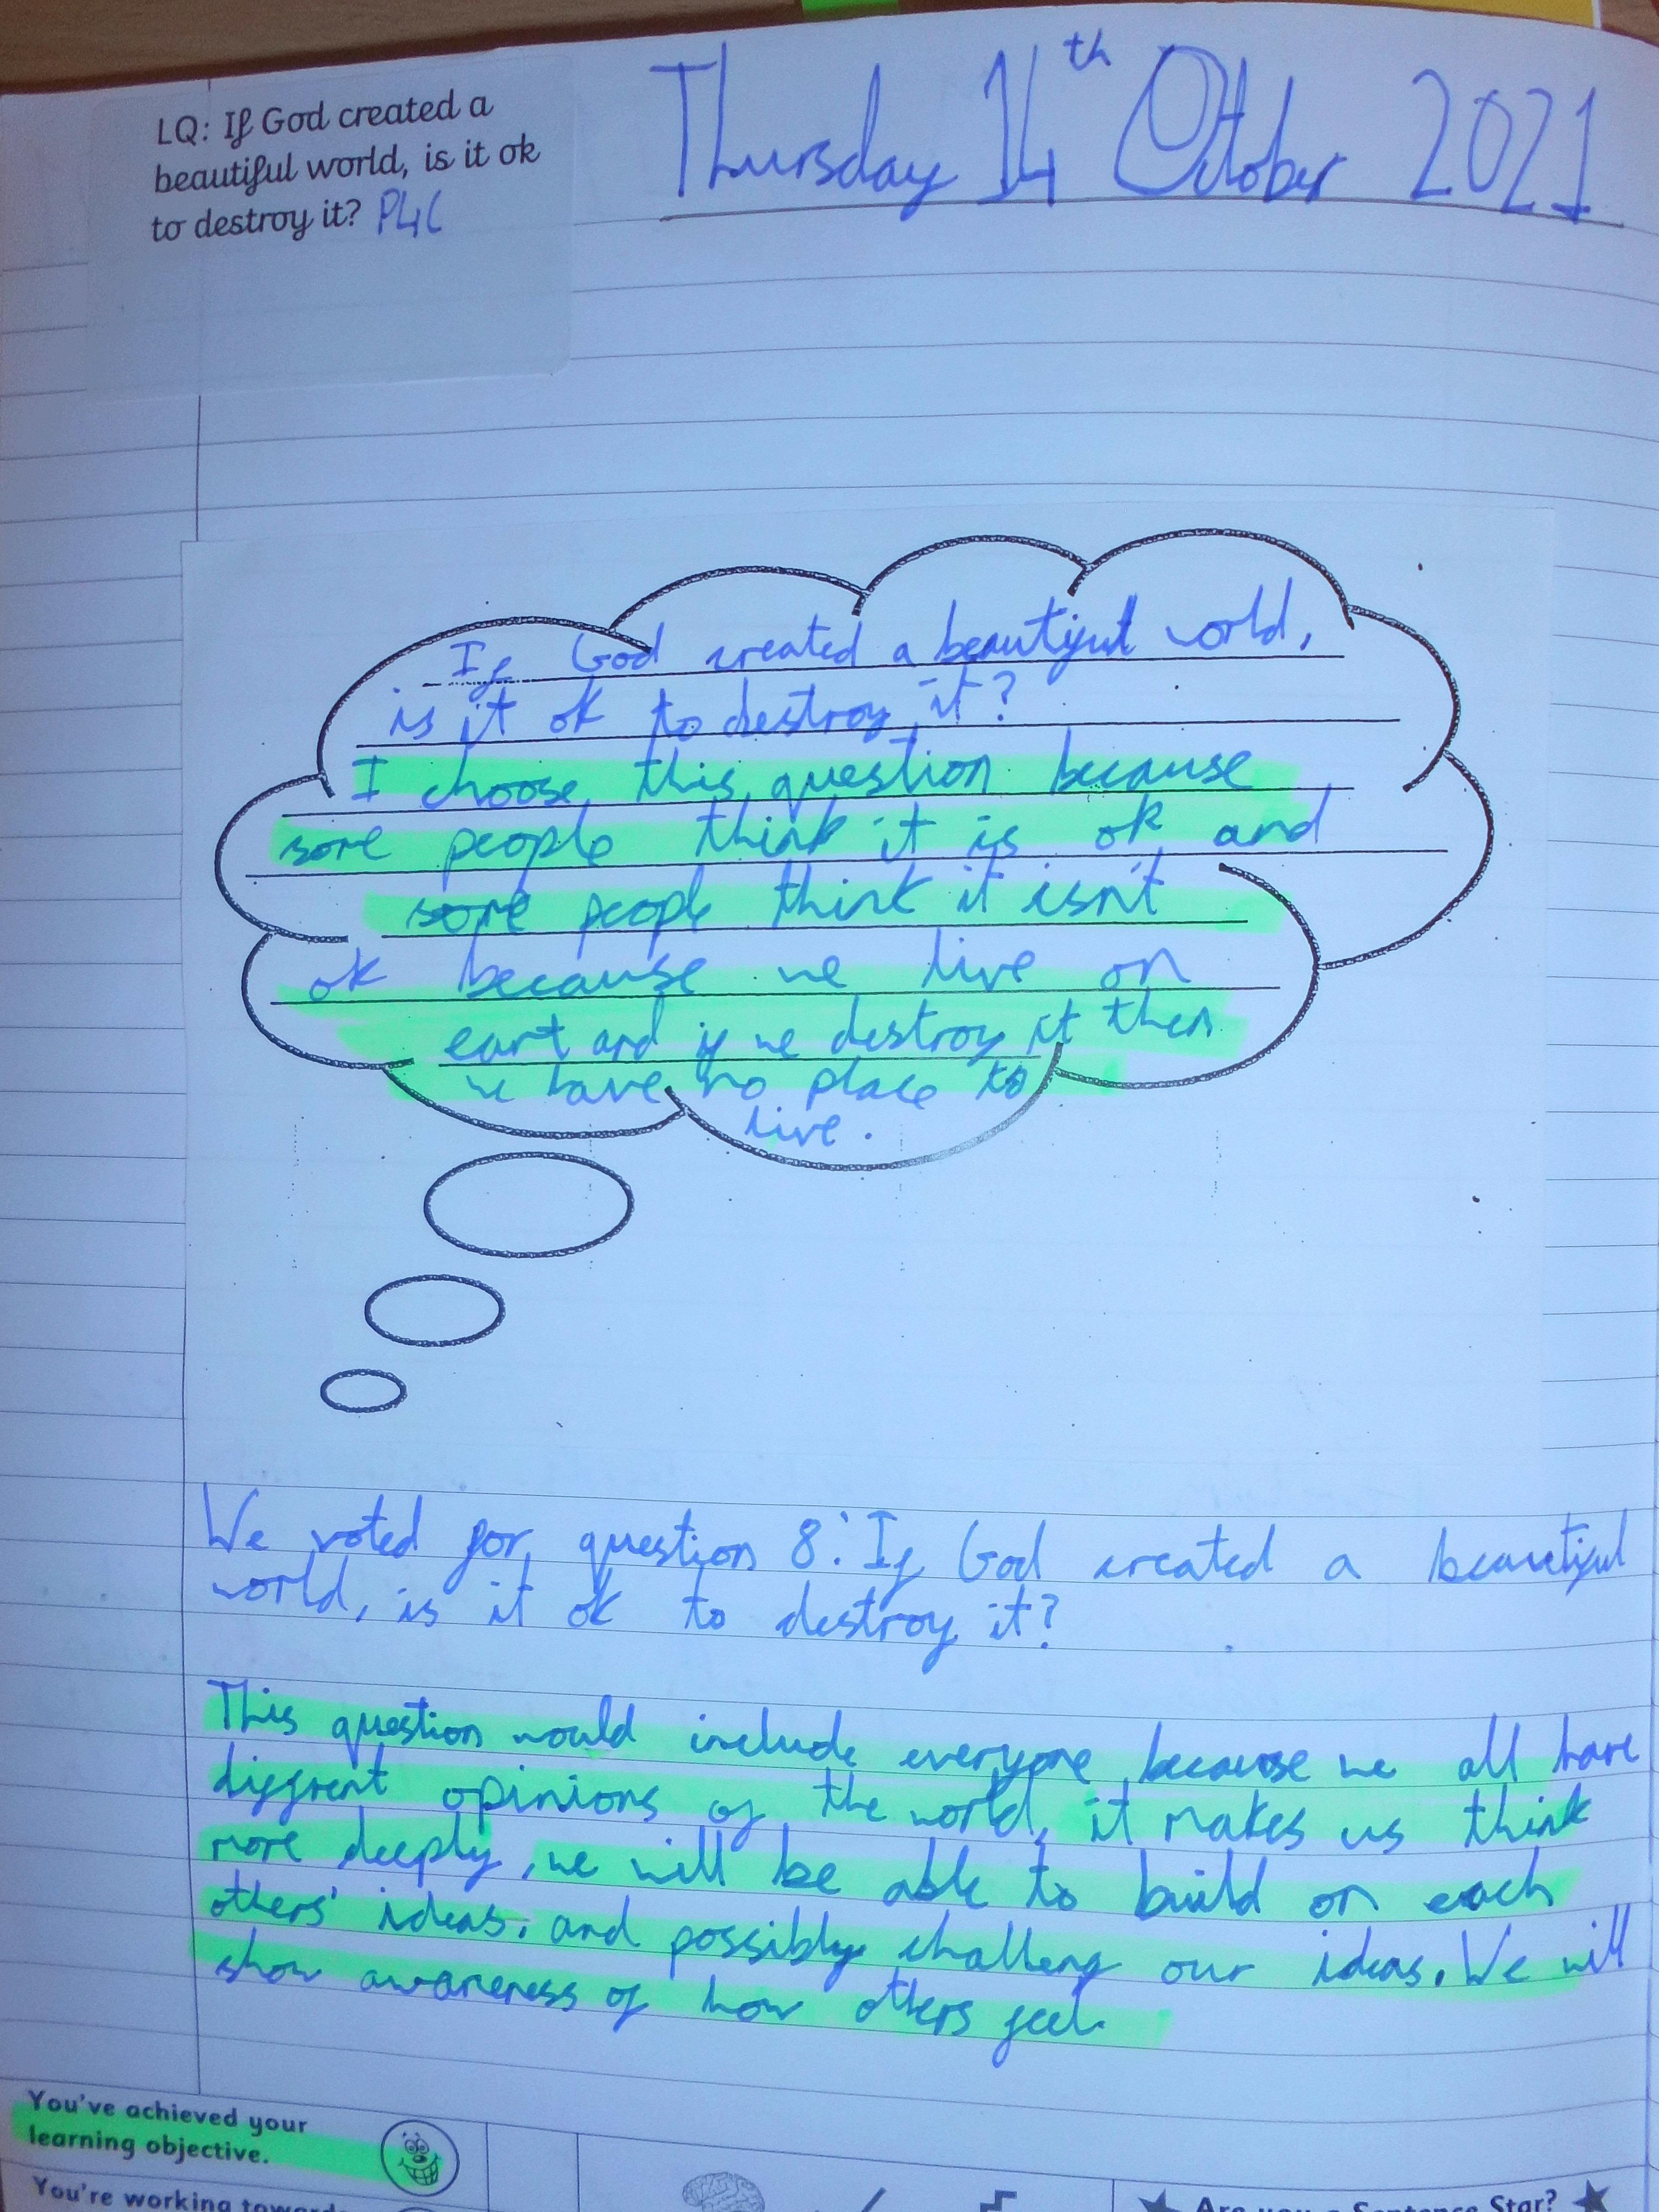 LQ: If God created a
beautiful world, is it ok
to destroy it? P4C
Thursday 14th October 2021
If God created a beautiful world,
is it ok to destroy it?
I choose this question because
some people think it is ok and
some people think it isn't
ok because we live on
eart and if we destroy it then
we have no place to
live.
We voted for question 8: If God created a beautiful
world, is it ok to destroy it?
This question would include everyone because we all have
diffrent opinions of the world, it makes us think
more deeply, we will be able to build on each
others' ideas, and possibly challeng our ideas. We will
show awareness of how others feel.
You've achieved your
learning objective.
You're working
Are you a Sentence Star?